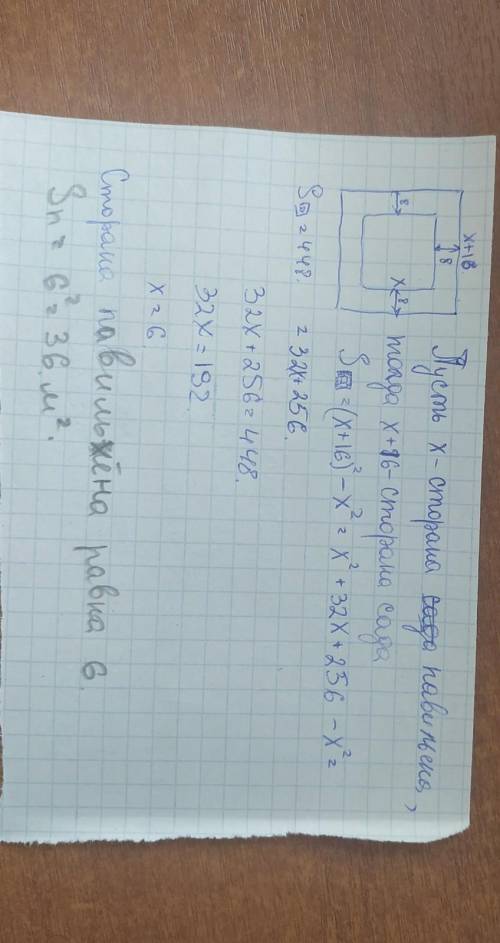 x+16
8
8
x
8
Пусть x - сторана павильена,
тогда x+16 - сторана сада
S = (x+16)² - x² = x² + 32x + 256 - x² =
= 32x + 256.
S = 448.
32x + 256 = 448.
32x = 192.
x = 6.
Сторана павильёна равна 6.
Sп = 6² = 36 м².